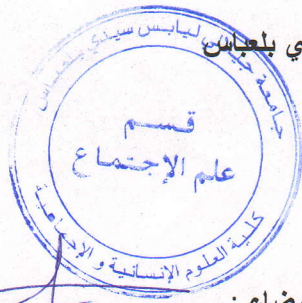 ي بلعباس
جامعة جيلالي ليابس سيدي بلعباس
قسم
علم الإجتماع
كلية العلوم الإنسانية و الإجتماعية